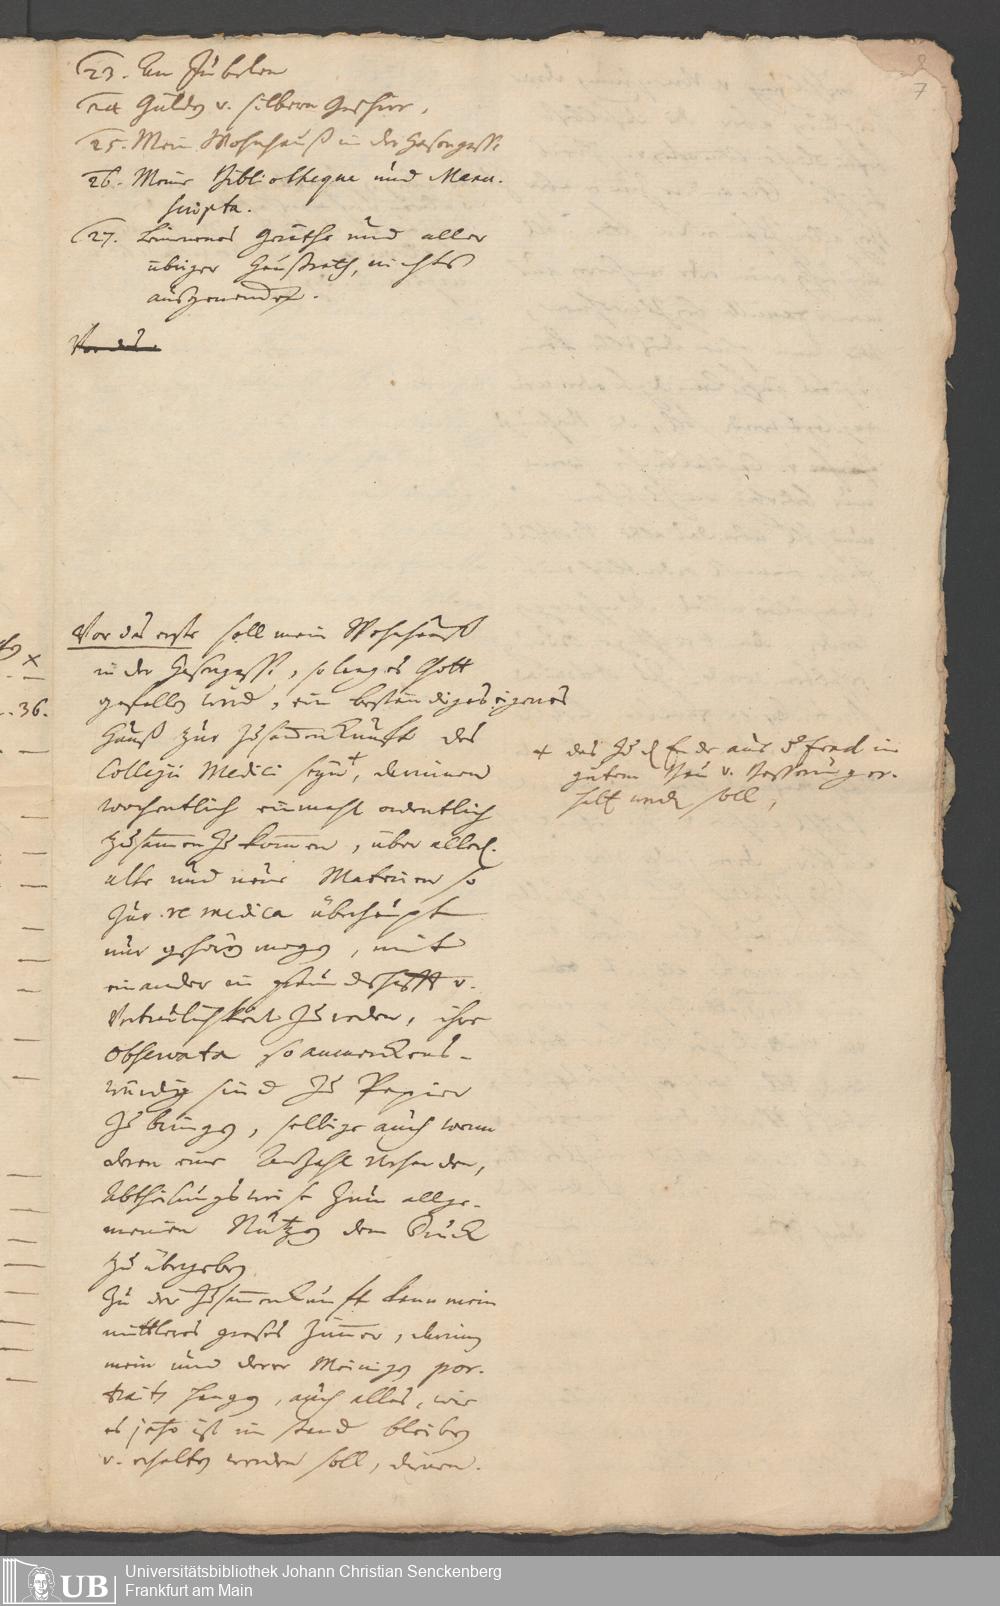 7
23. An Jubelen
24 Guldg v. silbern Geschirr,
25. Mein Wohnhauß in der Hasengasse
26. Meine Bibliotheque und Manu-
scripta.
27. Leinenes Geräthe und aller
übriger Haußrath, nichts
ausgewendet.
Vor das
Vor das erste soll mein Wohnhauß
in der Hasengasse, so lang es Gott
gefallen wird, ein beständiges eigenes
Hauß zur Zusammenkunft des
Collegii Medici seyn +, darinnen
wochentlich einmahl ordentlich
zusammen zu kommen, über allerl.
alte und neue Materien so
zur re medica überhaupt
nur gehören mögen, mit
einander in freundschafft v.
Vertraulichkeit zu reden, ihre
observata so anmerckens-
würdig sind zu Papier
zu bringen, selbige auch wenn
deren eine Anzahl vorhanden,
Abtheilungsweise zum allge-
meinen Nutzen dem Druck
zu übergeben
Zu der Zusammenkunft kann mein
mittleres großes Zimmer, darinn
mein und derer Meinigen por-
traits hangen, auch alles, wie
es jetzo ist im stand bleiben
v. erhalten werden soll, dienen.
+ das zu d Ende aus
gutem Bau v. Besserung er-
halt werd soll,
36.
Universitätsbibliothek Johann Christian Senckenberg
Frankfurt am Main
UB